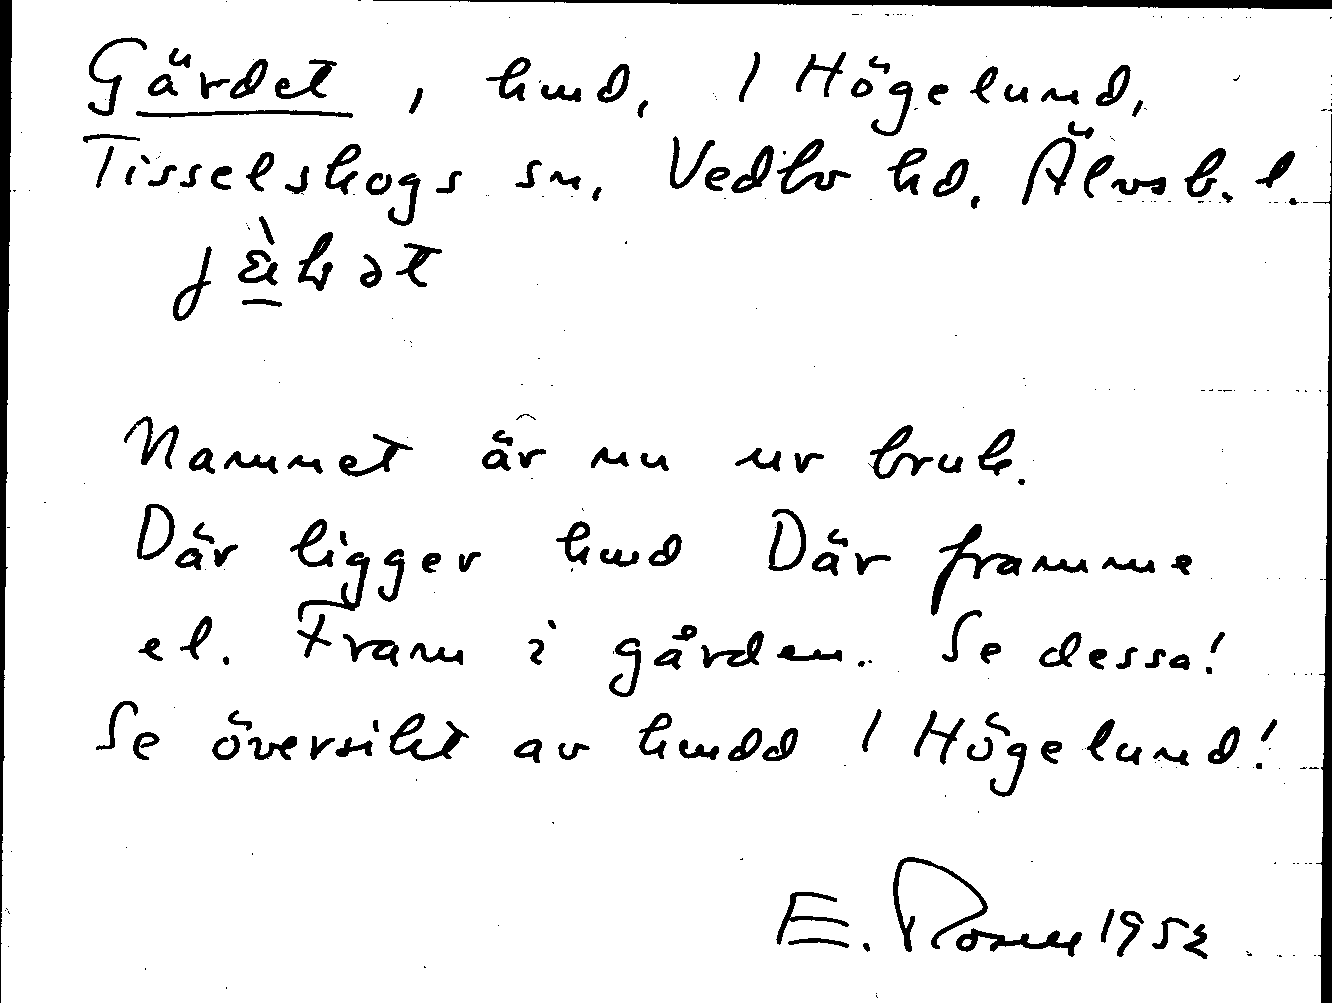 Gärdet, hmd, 1 Högelund,
Tisselskogs sn, Vedbo hd, Älvsb. l.
Namnet är nu ur bruk.
Där ligger hmd Där framme
el. Fram i gården. Se dessa!
Se översikt av hmdd 1 Högelund!
E. Rosell 1952